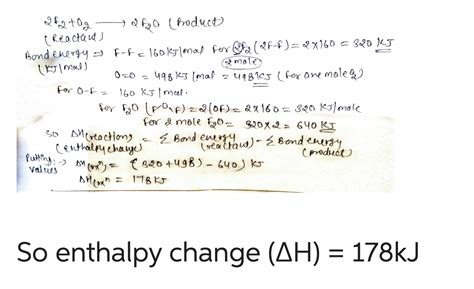 2F2+O2 → 2F2O (Product)
(Reactant)
Bond energy ⇒ F-F = 160 KJ/mol For 2F2 (2F-F) = 2×160 = 320 KJ
(KJ/mol) 2 mole
O=O = 498 KJ/mol = 498 KJ (for one mole O2)
for O-F = 160 KJ/mol.
for F2O (F-O-F) = 2(OF) = 2×160 = 320 KJ/mole
For 2 mole F2O = 320×2 = 640 KJ
So ΔH(reaction) = Σ Bond energy (reactant) - Σ Bond energy (product)
(enthalpy change)
Putting values → ΔH(rxn) = (320+498) - 640) KJ
ΔH(rxn) = 178 KJ
So enthalpy change (ΔH) = 178kJ